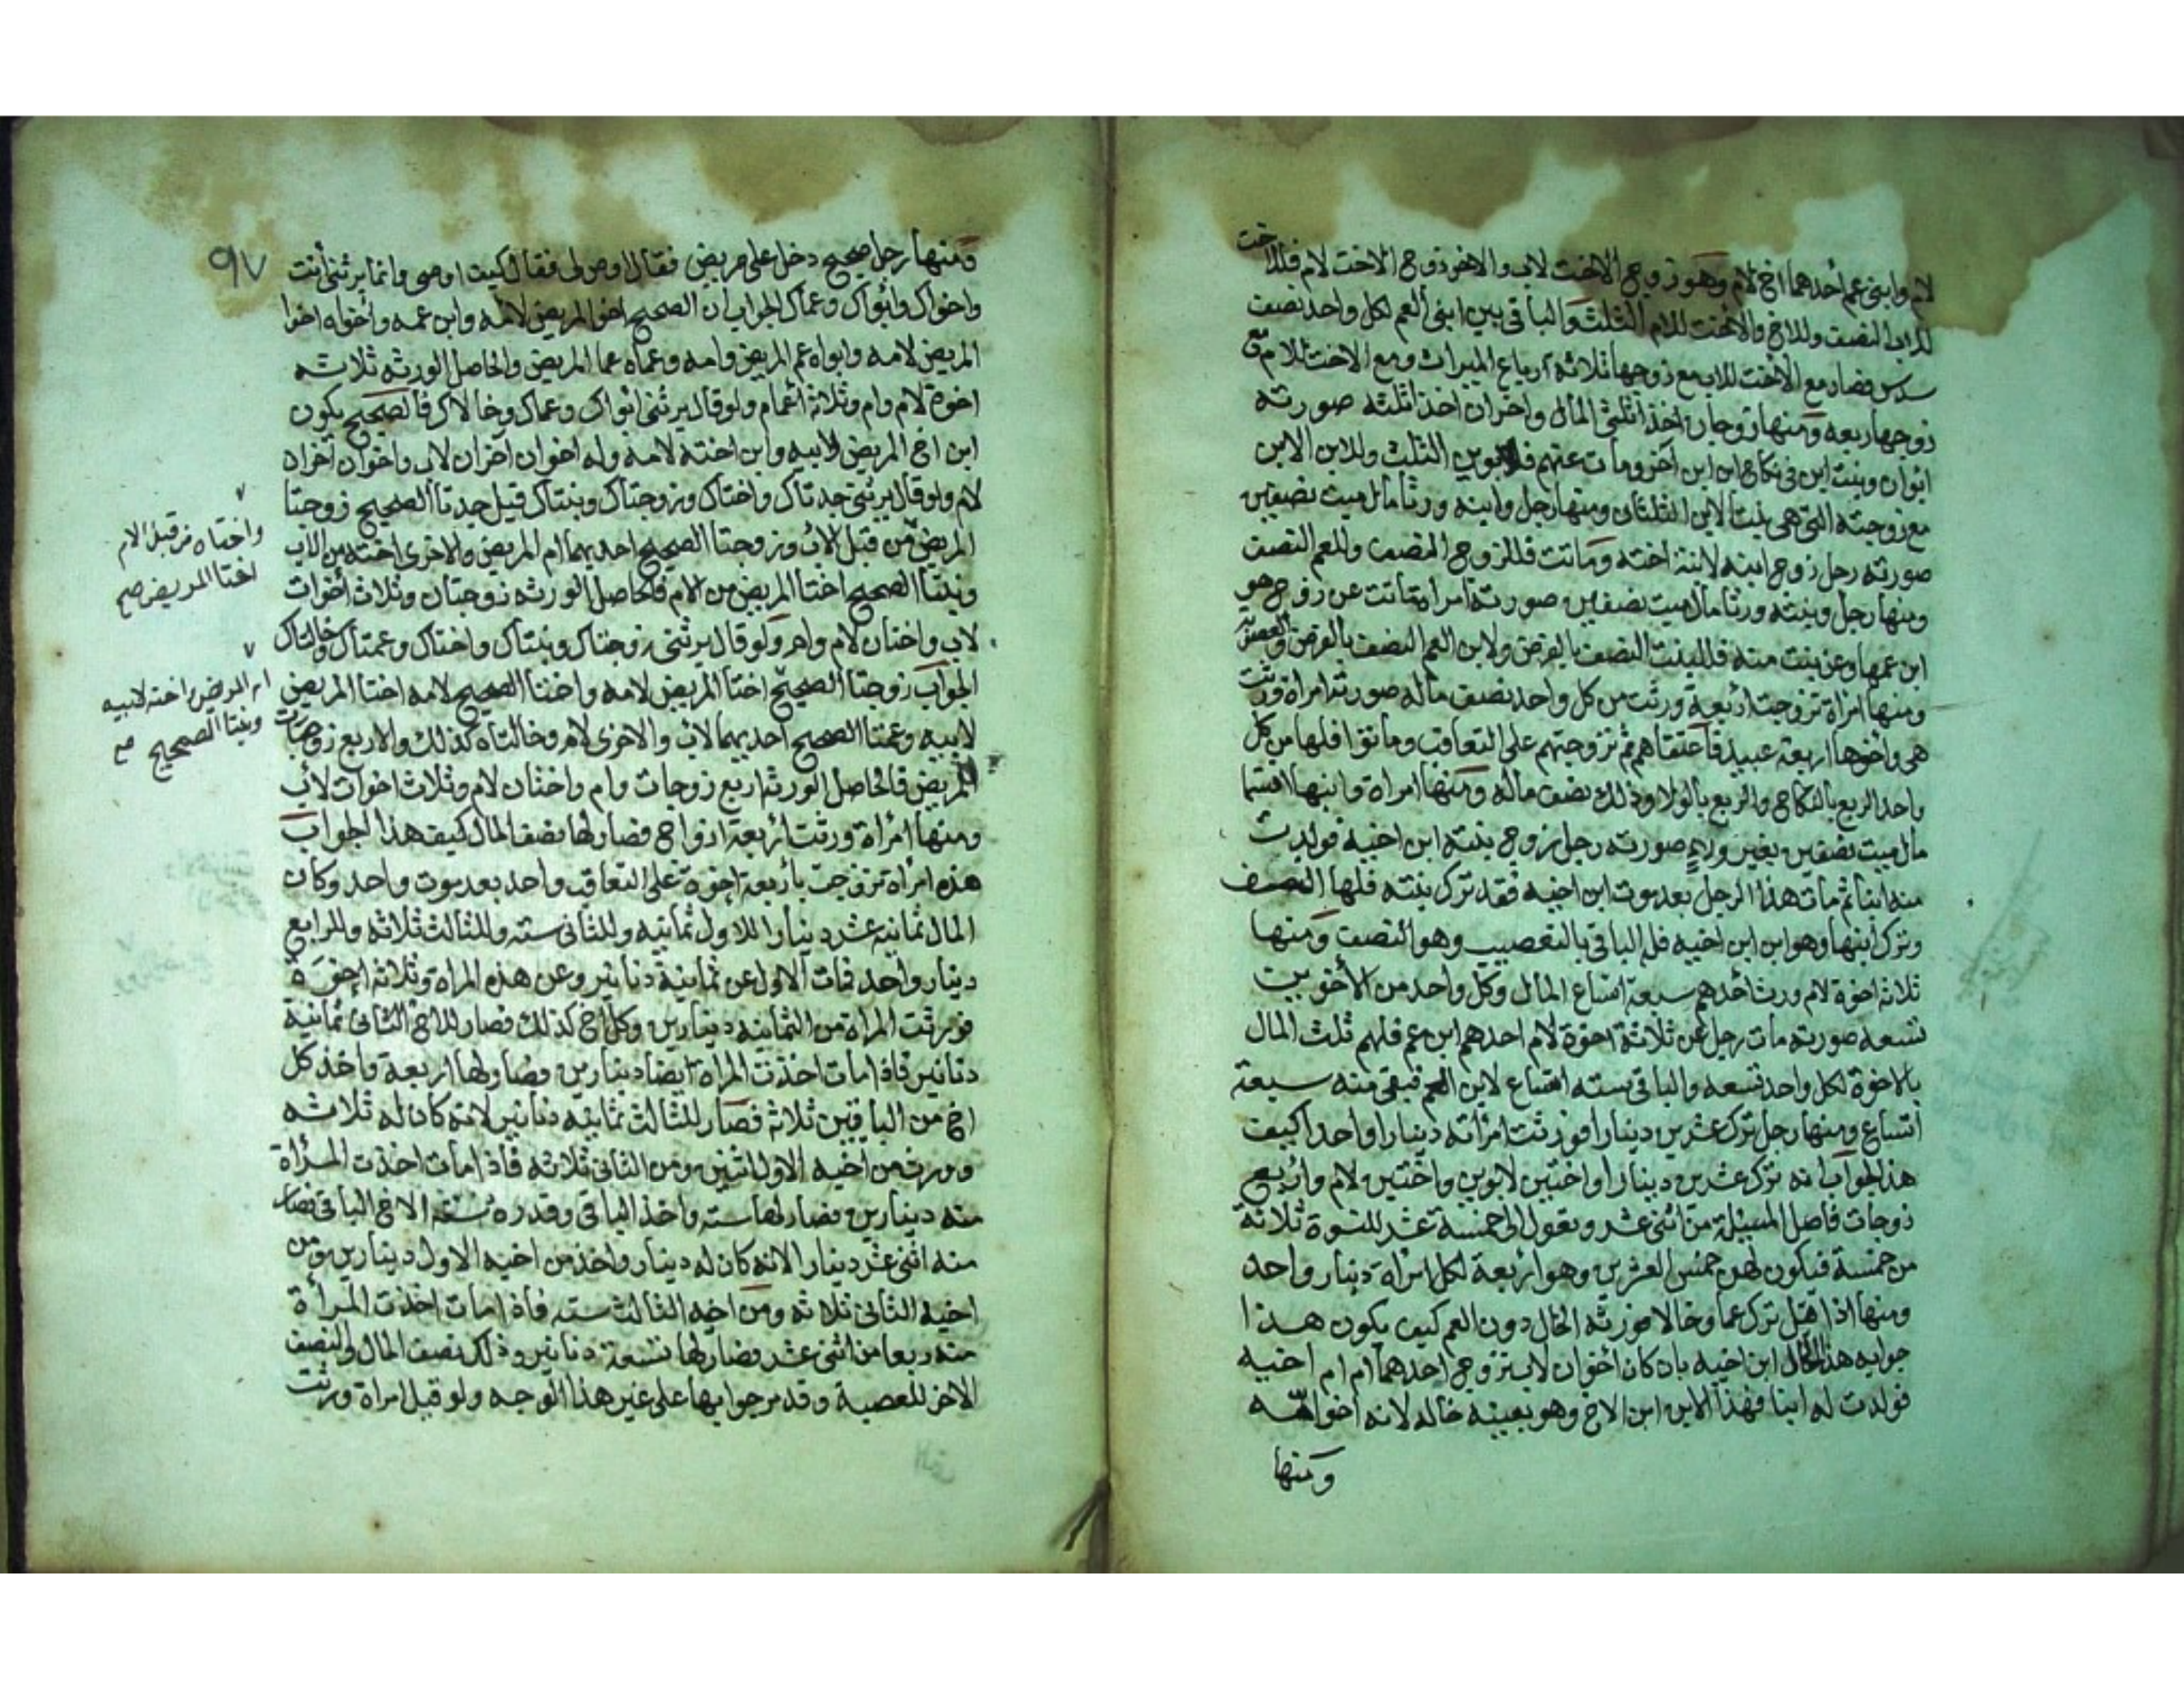 لام وابنى عم أحدهما اخ لام وهو زوج الاخت لاب والاخر زوج الاخت لام فللاخت
للاب النصف وللاخ والاخت للام الثلث والباقى بين ابنى العم لكل واحد نصف
سدس فصار مع الأخت للاب مع زوجها ثلاثة أرباع الميراث ومع الاخت للام مع
زوجها ربعه ومنها زوجان اخذا ثلثى المال واخران اخذا ثلثه صورته
ابوان وبنت ابن فى نكاح ابن ابن آخر ومات عنهم فللابوين الثلث وللابن الابن
مع زوجته التى هى بنت الابن الثلثان ومنها رجل وابنه ورثا مال ميت نصفين
صورته رجل زوج ابنه لابنة اخته وماتت فللزوج النصف وللعم النصف
ومنها رجل وبنته ورثا مال ميت نصفين صورته امراة ماتت عن زوج هو
ابن عمها وعن بنت منه فللبنت النصف بالفرض ولابن العم النصف بالفرض والعصوبة
ومنها امراة تزوجت اربعة ورثت من كل واحد نصف ماله صورته امراة ورثت
هى واخوها اربعة عبيد فاعتقاهم ثم تزوجتهم على التعاقب وماتوا فلها من كل
واحد الربع بالنكاح والربع بالولا وذلك نصف ماله ومنها امراة وابنها اقتسما
مال ميت نصفين بغير ولاء صورته رجل زوج بنته ابن اخيه فولدت
منه ابنا ثم مات هذا الرجل بعد موت ابن اخيه فقد ترك بنته فلها النصف
وترك ابنها وهو ابن ابن اخيه فله الباقى بالتعصيب وهو النصف ومنها
ثلاثة اخوة لام ورث أحدهم سبعة اتساع المال وكل واحد من الأخوين
تسعه صورته مات رجل عن ثلاثة اخوة لام احدهم ابن عم فلهم ثلث المال
بالاخوة لكل واحد تسعه والباقى ستة اتساع لابن العم فبقى منه سبعة
اتساع ومنها رجل ترك عشرين دينارا فورثت امرأته دينارا واحدا كيف
هذا الجواب انه ترك عشرين دينارا واختين لابوين واختين لام واربع
زوجات فاصل المسئلة من اثنى عشر وتعول الى خمسة عشر للنسوة ثلاثة
من خمسة فيكون لهن خمس العشرين وهو اربعة لكل امراة دينار واحد
ومنها اذا قيل ترك عما وخالا فورثه الخال دون العم كيف يكون هذا
جوابه هذا الخال ابن اخيه بان كان أخوان لاب تزوج احدهما ام ام اخيه
فولدت له ابنا فهذا الابن ابن الاخ وهو بعينه خاله لانه اخو امه
ومنها
٩٧
ومنها رجل صحيح دخل على مريض فقال اوص لى فقال كيف اوصى وانما يرثنى أنت
واخواك وابواك وعماك الجواب ان الصحيح اخو المريض لامه وابن عمه وأخواه اخوا
المريض لامه وابواه عم المريض وامه وعماه عما المريض والحاصل الورثه ثلاثه
اخوة لام وام وثلاثة أعمام ولو قال يرثنى ابواك وعماك وخالاك فالصحيح يكون
ابن اخ المريض لابيه وابن اخته لامه وله اخوان آخران لاب واخوان آخران
لام ولو قال يرثنى جدتاك واختاك وزوجتاك وبنتاك قيل جدتا الصحيح زوجتا
المريض من قبل الاب وزوجتا الصحيح احديهما ام المريض والاخرى اخته من الاب
وبنتا الصحيح اختا المريض من الام فالحاصل الورثه زوجتان وثلاث أخوات
لاب واختان لام وام ولو قال يرثنى زوجتاك وبنتاك واختاك وعمتاك وخالتاك
الجواب زوجتا الصحيح اختا المريض لامه واختا الصحيح لامه اختا المريض
لابيه وعمتا الصحيح احديهما لاب والاخرى لام وخالتاه كذلك والاربع زوجات
المريض فالحاصل الورثه اربع زوجات وام واختان لام وثلاث اخوات لأب
ومنها امرأة ورثت اربعة ازواج فصار لها نصف المال كيف هذا الجواب
هذه امراة تزوجت بأربعة اخوة على التعاقب واحد بعد موت واحد وكان
المال ثمانيه عشر دينارا للاول ثمانيه وللثانى سته وللثالث ثلاثه وللرابع
دينار واحد فمات الاول عن ثمانية دنانير وعن هذه المراة وثلاثة اخوة
فورثت المراة من الثمانيه دينارين وكل اخ كذلك فصار للاخ الثانى ثمانية
دنانير فاذا مات اخذت المراه ايضا دينارين فصار لها اربعة واخذ كل
اخ من الباقين ثلاثه فصار للثالث ثمانيه دنانير لانه كان له ثلاثه
وورث من اخيه الاول اثنين ومن الثانى ثلاثه فاذا مات اخذت المرأة
منه دينارين فصار لها سته واخذ الباقى وقدره ستة الاخ الباقى فصار
منه اثنى عشر دينارا لانه كان له دينار واخذ من اخيه الاول دينارين ومن
اخيه الثانى ثلاثه ومن اخيه الثالث سته فاذا مات اخذت المرأة
منه ربعا من اثنى عشر فصار لها تسعة دنانير وذلك نصف المال والنصف
الاخر للعصبة وقد مر جوابها على غير هذا الوجه ولو قيل امراة ورثت
واختاه من قبل الام
اختا المريض صح
ام المريض واخته لابيه
وبنتا الصحيح صح